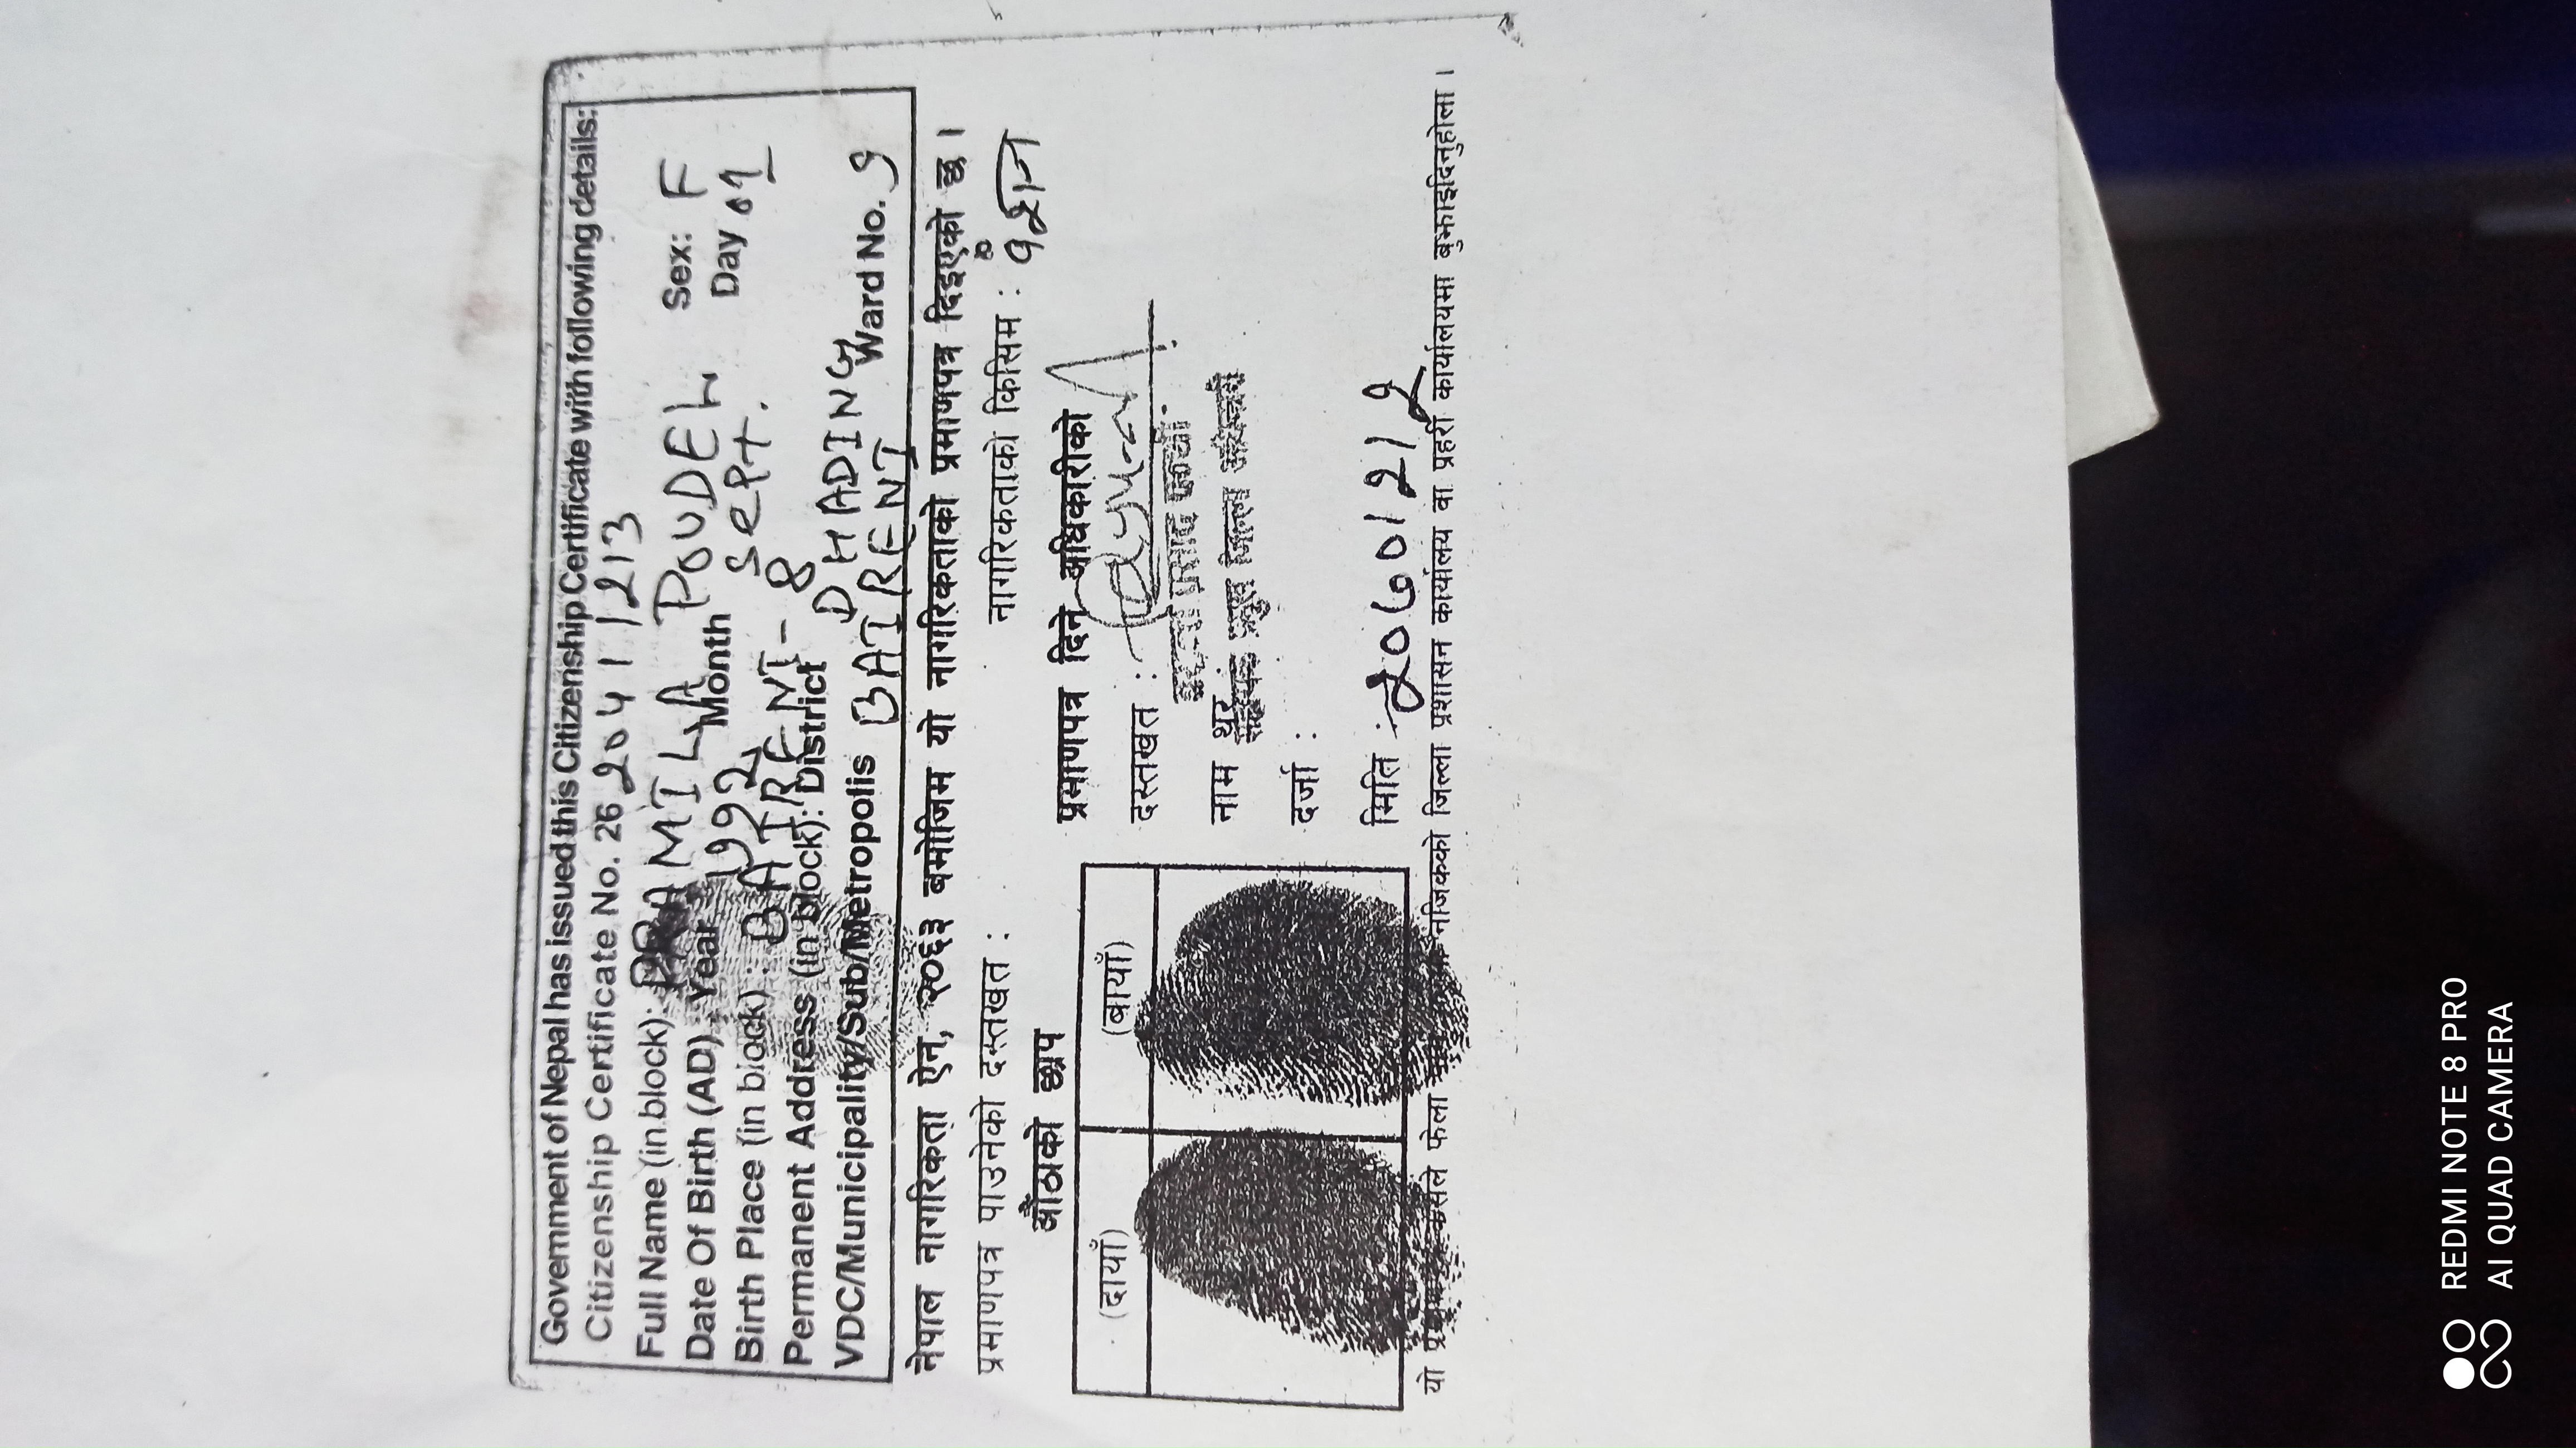 Government of Nepal has issued this Citizenship Certificate with following details:
Citizenship Certificate No. 26 2041 1213
Full Name (in block): PRAMILA POUDEL Sex: F
Date Of Birth (AD) : Year 1992 Month Sept. Day 01
Birth Place (in block) : BAIRENI - 8
Permanent Address (in block): District DHADING
VDC/Municipality/Sub/Metropolis BAIRENI Ward No.
नेपाल नागरिकता ऐन, २०६३ बमोजिम यो नागरिकताको प्रमाणपत्र दिइएको छ ।
प्रमाणपत्र पाउनेको दस्तखत : नागरिकताको किसिम : वंशज
औंठाको छाप
(दायाँ) (बायाँ)
प्रमाणपत्र दिने अधिकारीको
दस्तखत :
प्रसाद
नाम थर :
प्रमुख जिल्ला अधिकारी
दर्जा :
मिति :
यो कसैले फेला नजिकको जिल्ला प्रशासन कार्यालय वा प्रहरी कार्यालयमा बुझाइदिनुहोला ।
REDMI NOTE 8 PRO
AI QUAD CAMERA